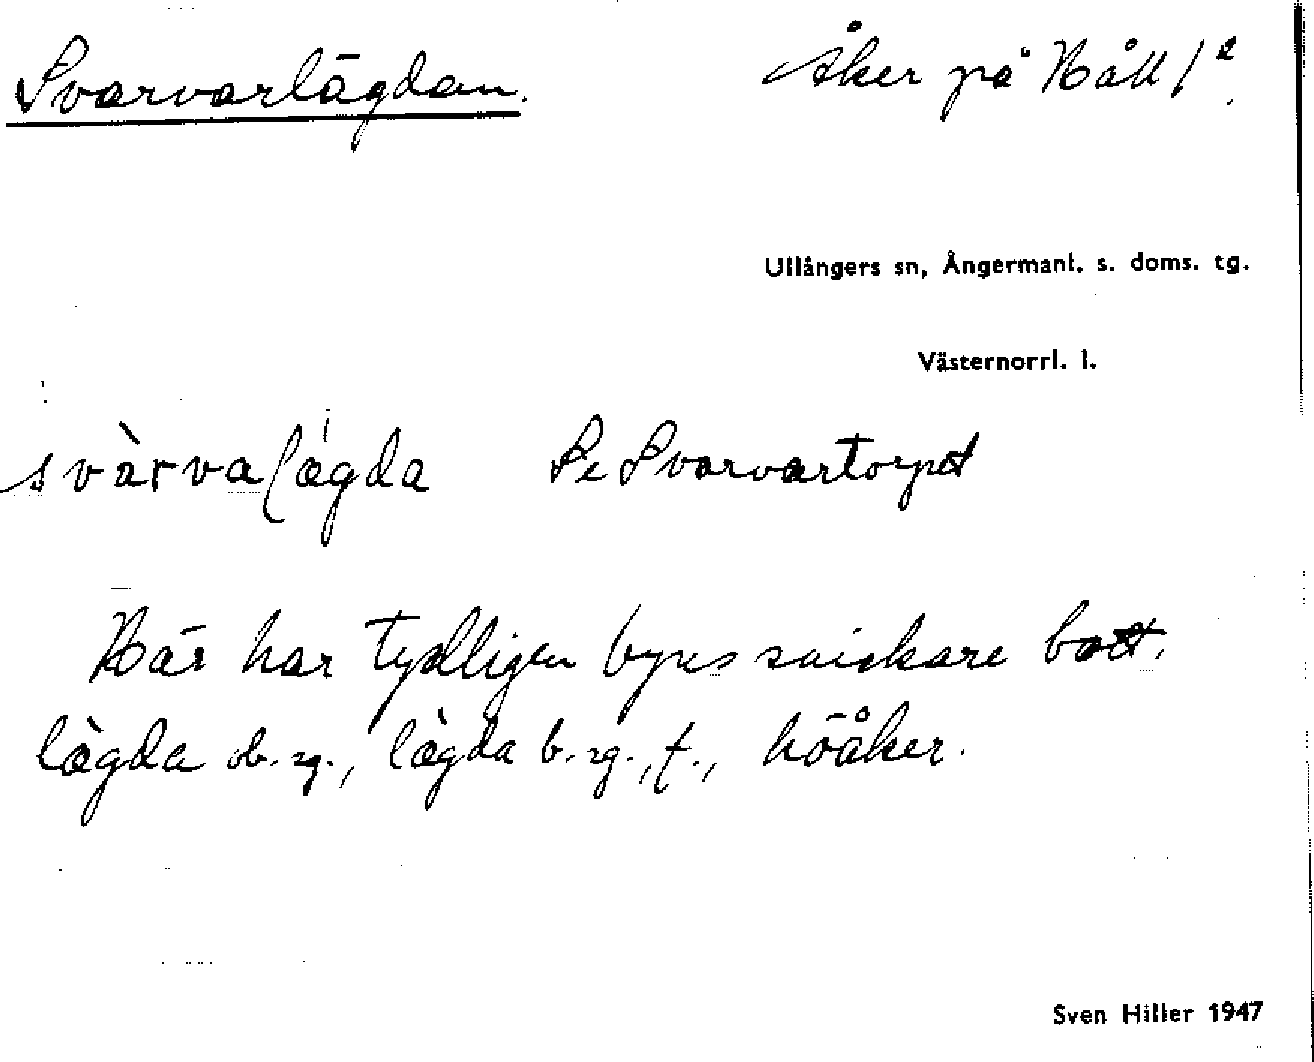 Svarvarlägdan.
Åker på Håll 1²
Ullångers sn, Ångermanl. s. doms. tg.
Västernorrl. l.
svàrvalǽgda Se Svarvartorpet
Här har tydligen byns snickare bott.
lǽgda ob. sg., lǽgda b. sg., f., höåker.
Sven Hiller 1947